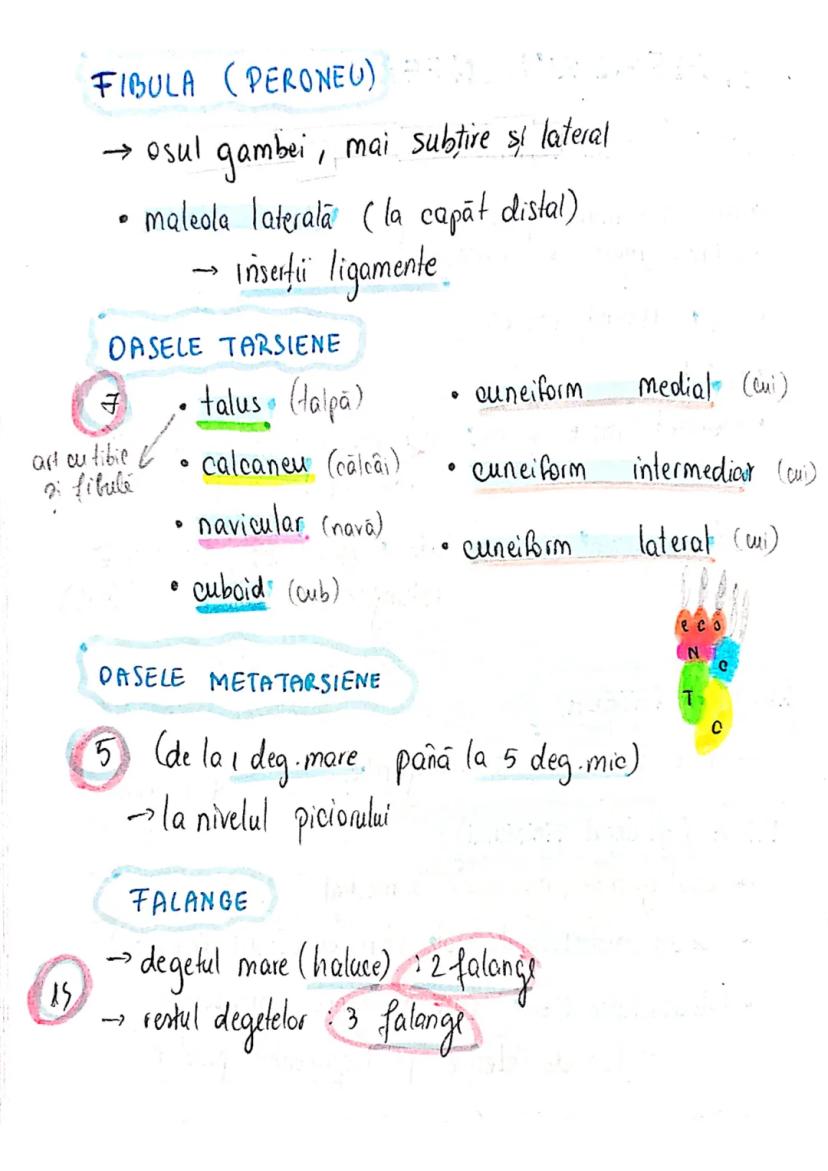 FIBULA (PERONEU)
→ osul gambei, mai subțire și lateral
• maleola laterală (la capăt distal)
→ inserții ligamente
OASELE TARSIENE
7
• talus (talpă)
art cu tibie
și fibulă
• calcaneu (călcâi)
• navicular (navă)
• cuboid (cub)
• cuneiform medial (cui)
• cuneiform intermediar (cui)
• cuneiform lateral (cui)
C C
N C
T
C
OASELE METATARSIENE
5 (de la 1 deg.mare până la 5 deg.mic)
→ la nivelul piciorului
FALANGE
→ degetul mare (haluce) : 2 falange
→ restul degetelor : 3 falange